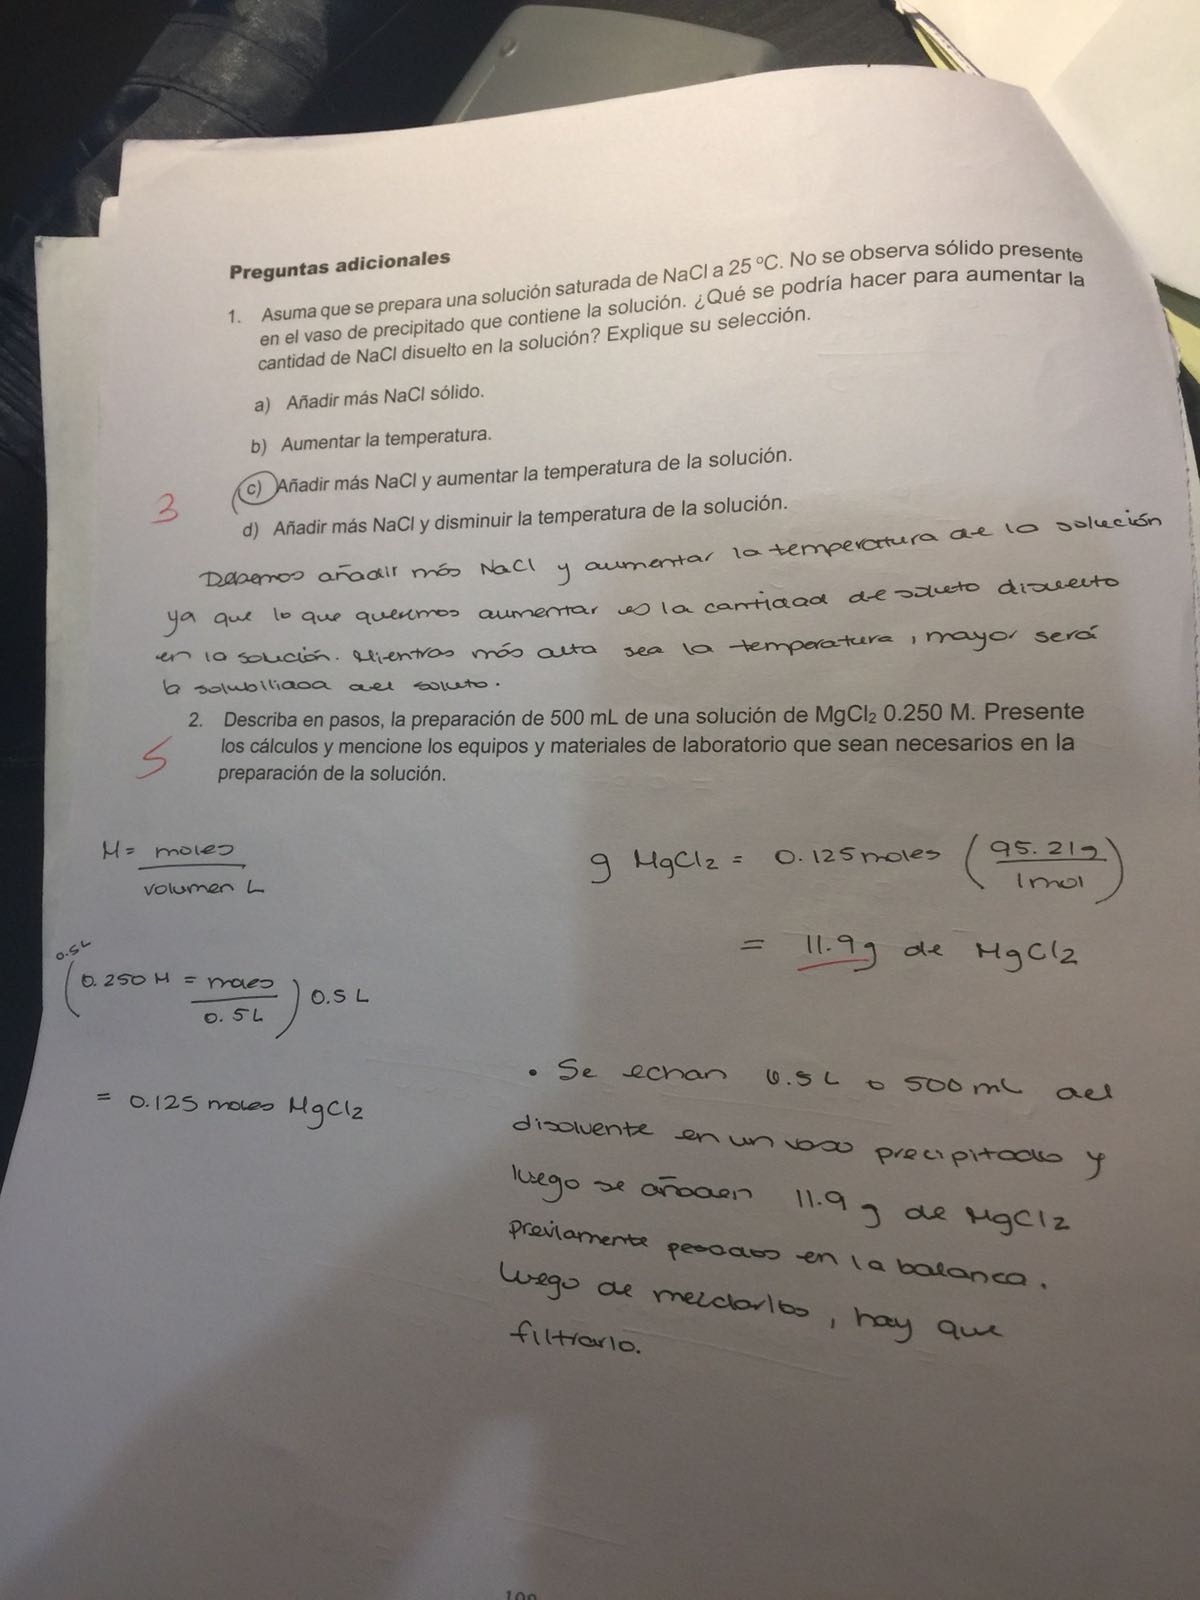 Preguntas adicionales
1. Asuma que se prepara una solución saturada de NaCl a 25 ºC. No se observa sólido presente
en el vaso de precipitado que contiene la solución. ¿Qué se podría hacer para aumentar la
cantidad de NaCl disuelto en la solución? Explique su selección.
a) Añadir más NaCl sólido.
b) Aumentar la temperatura.
c) Añadir más NaCl y aumentar la temperatura de la solución.
3
d) Añadir más NaCl y disminuir la temperatura de la solución.
Debemos añadir más NaCl y aumentar la temperatura de la solución
ya que lo que queremos aumentar es la cantidad de soluto disuelto
en la solución. Mientras más alta sea la temperatura, mayor será
la solubilidad del soluto.
2. Describa en pasos, la preparación de 500 mL de una solución de MgCl₂ 0.250 M. Presente
5
los cálculos y mencione los equipos y materiales de laboratorio que sean necesarios en la
preparación de la solución.
M = moles
volumen L
0.5L
(0.250 M = moles
0.5L) 0.5 L
= 0.125 moles MgCl2
g MgCl2 = 0.125 moles (95.21g
1mol)
= 11.9g de MgCl2
• Se echan 0.5L o 500 mL del
disolvente en un vaso precipitado y
luego se añaden 11.9 g de MgCl2
previamente pesados en la balanca.
Luego de mezclarlos, hay que
filtrarlo.